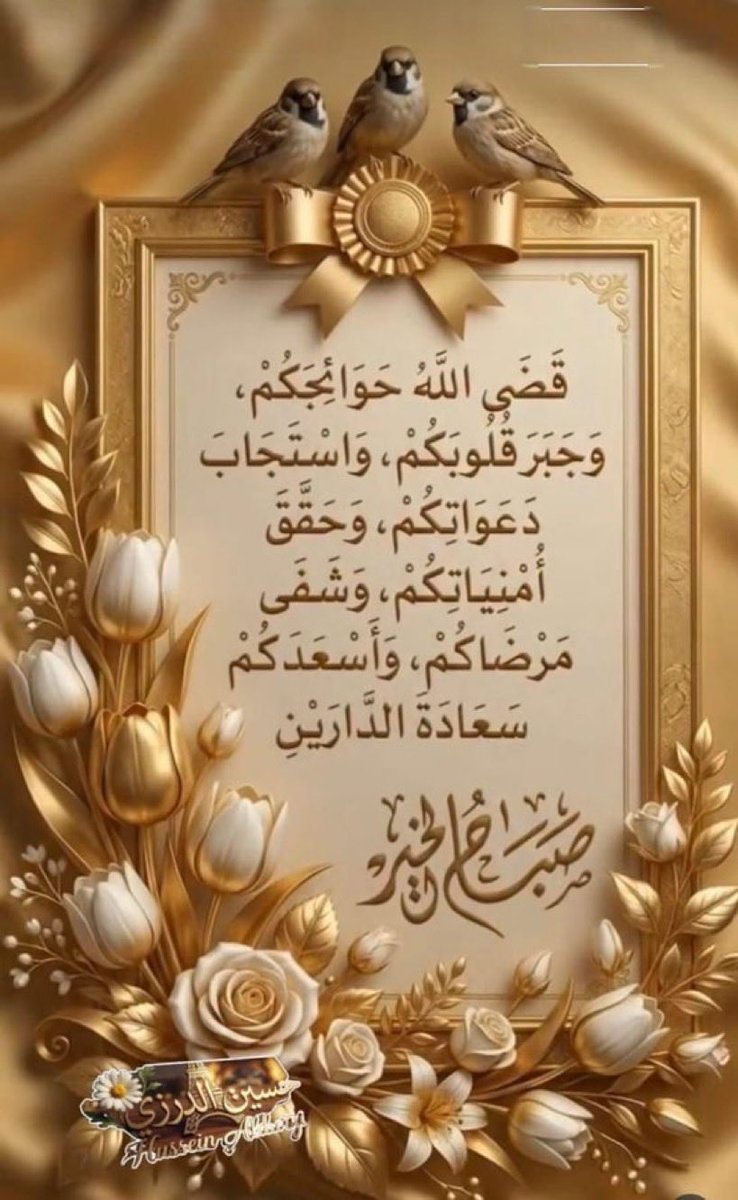 قَضَى اللَّهُ حَوَائِجَكُمْ،
وَجَبَرَ قُلُوبَكُمْ، وَاسْتَجَابَ
دَعَوَاتِكُمْ، وَحَقَّقَ
أُمْنِيَاتِكُمْ، وَشَفَى
مَرْضَاكُمْ، وَأَسْعَدَكُمْ
سَعَادَةَ الدَّارَيْنِ
صَبَاحُ الخير
حسين الدرزي
Hussein